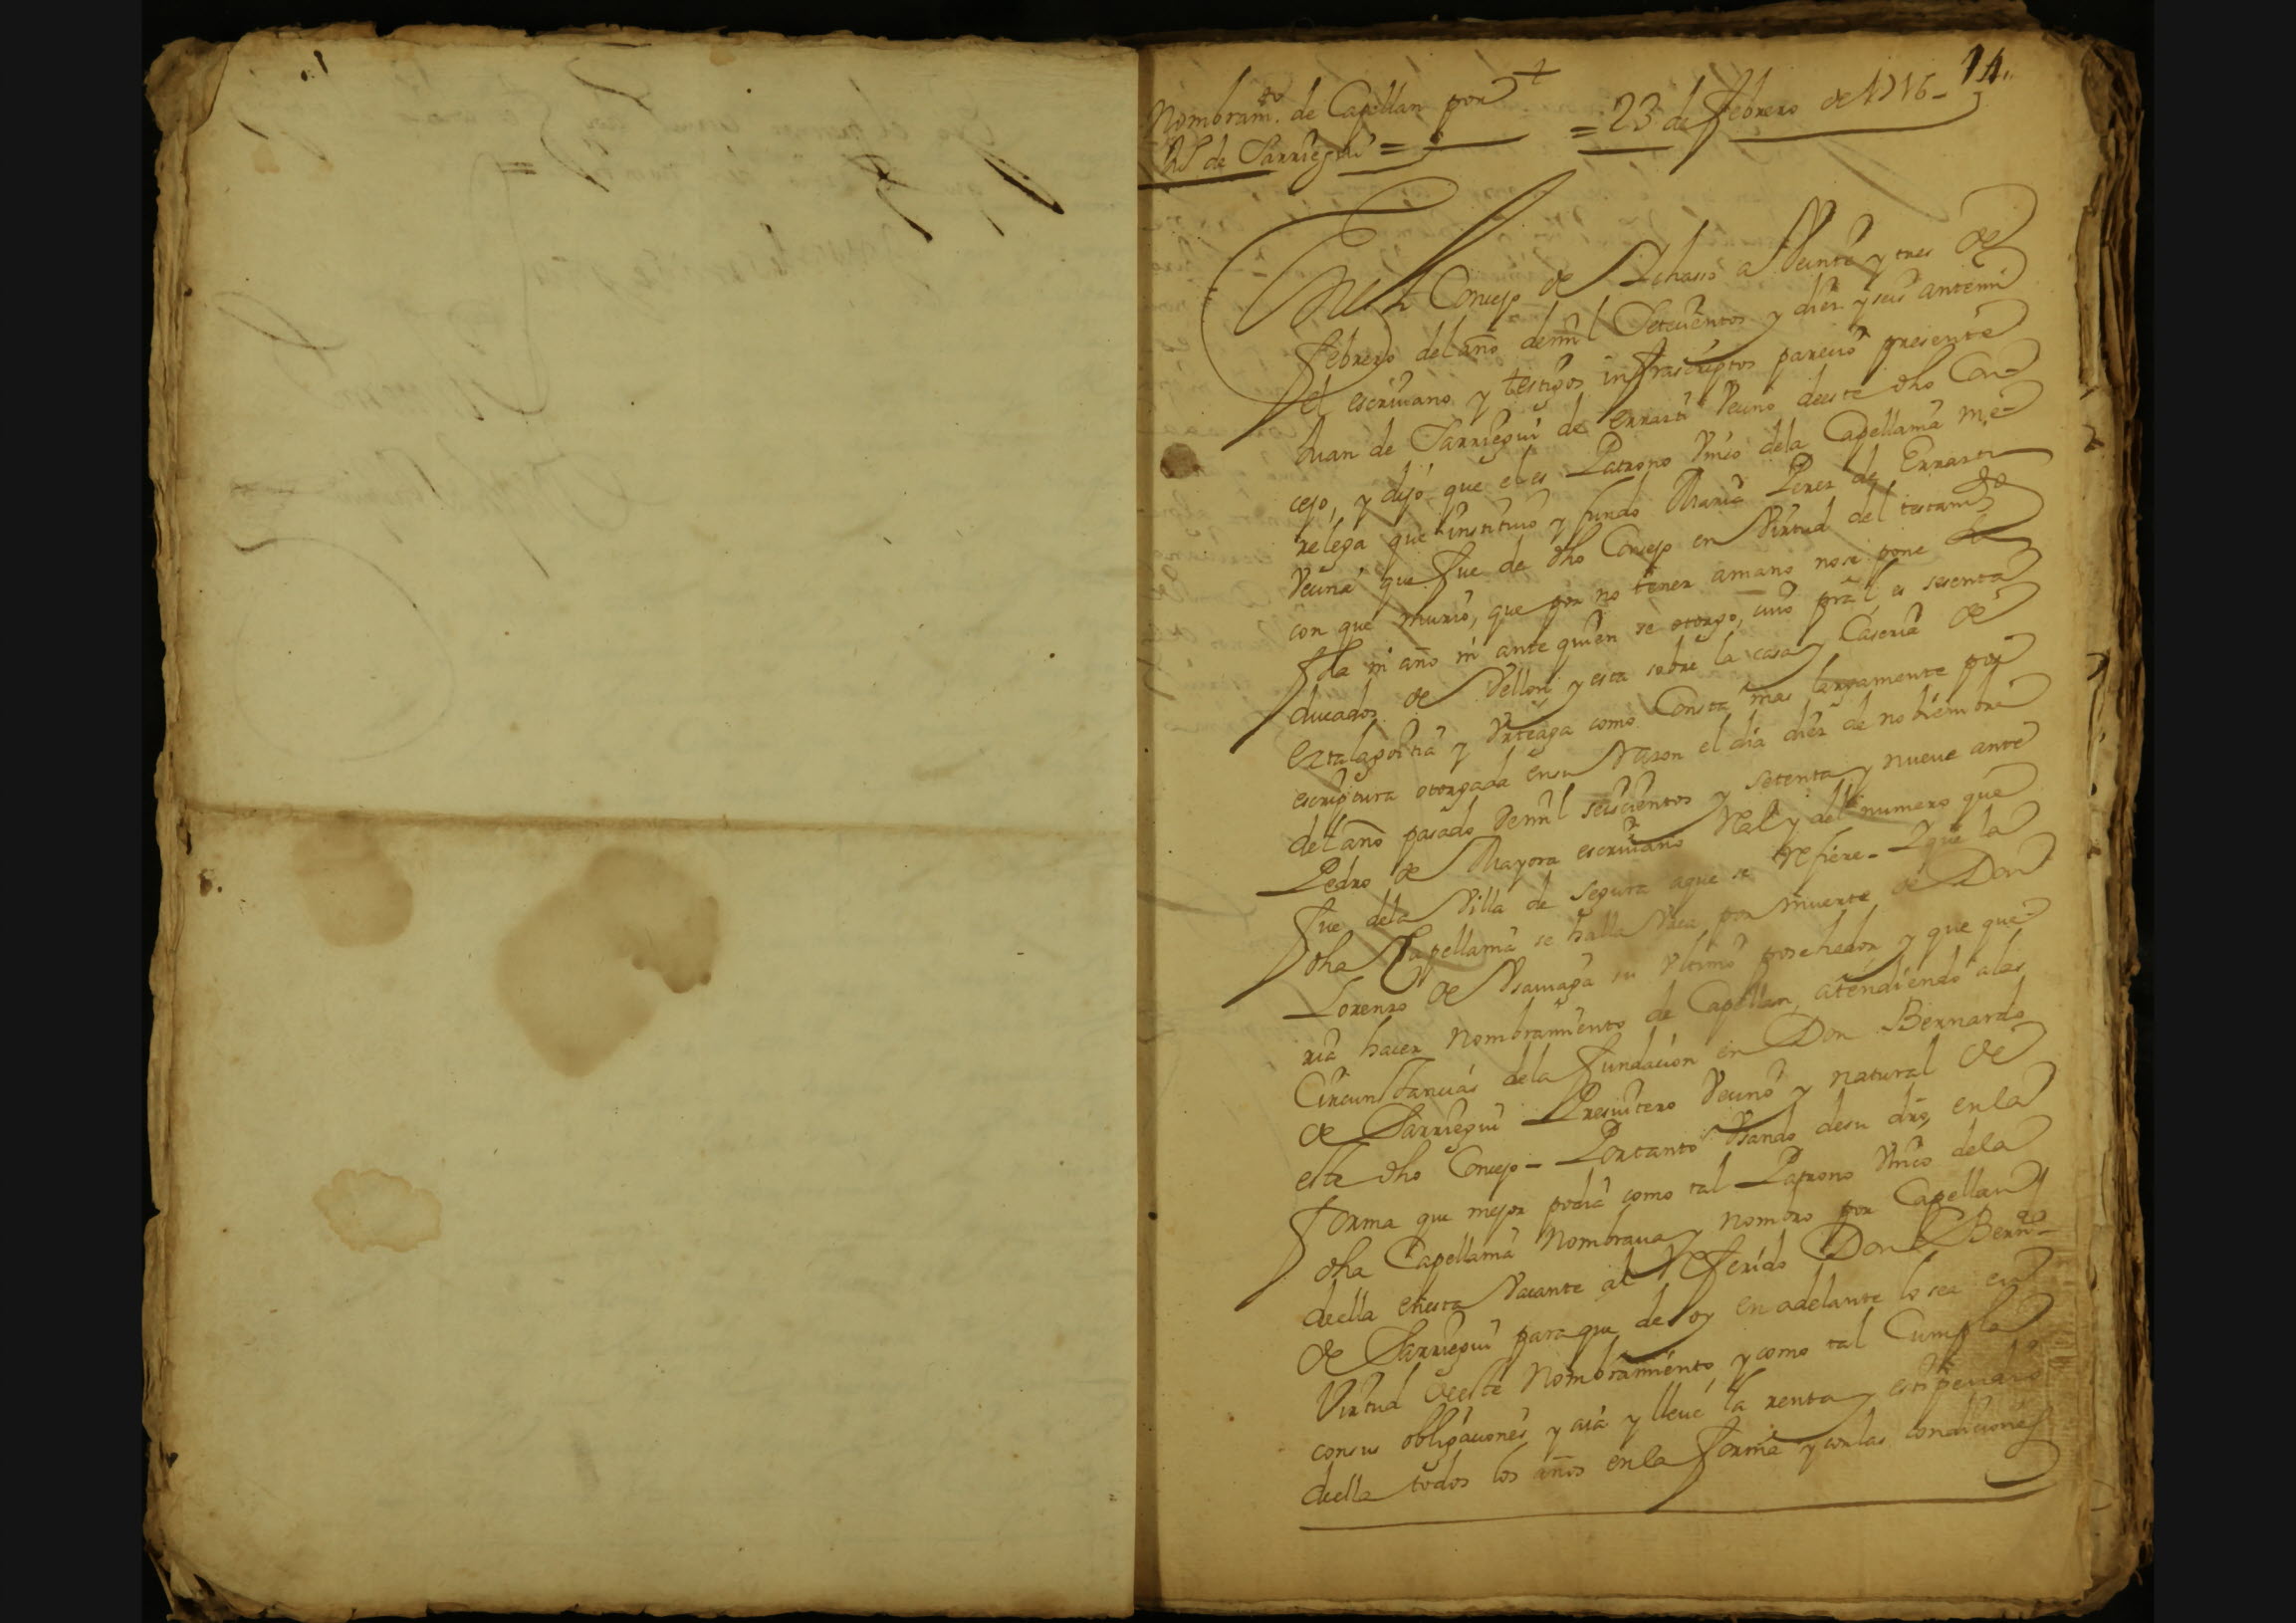 14.
Nombram.to de Capellan por
de Sarriegui = = 23 de febrero de 1716-
En el Concejo de Ychasso a Veinte y tres de
febrero del año de mil Setecientos y diez y seis antemi
el escriuano y testigos infrascriptos parecio presente
Juan de Sarriegui de errazti Vecino deeste dho Con-
cejo, y dijo que el es Patrono Vnico dela Capellania me-
relega que instituio y fundo Maria Perez de Errazti
Vecina que fue de dho Concejo en Virtud del testam.to
con que murio, que por no tener amano nose pone el
dia ni año ni ante quien se otorgo, cuio pral es sesenta
ducados de Vellon y esta sobre la casa y Caseria de
eztalagoitia y Vrteaga como Consta mas largamente por
escriptura otorgada ensu Razon el dia diez de nobiembre
del año pasado demil seiscientos y setenta y nueue ante
Pedro de Mayora escriuano Real y del numero que
fue dela Villa de Segura aque se refiere - Y que la
dha Capellania se halla Vaca por muerte de Don
Lorenzo de Vsauiaga su Vltimo posehedor y que que-
ria hacer Nombramiento de Capellan, atendiendo alas
Circunstancias dela fundacion en Don Bernardo
de Sarriegui Presuitero Vecino y natural de
este dho Concejo - Portanto Vsando desu dro, enla
forma que mejor podia como tal Patrono Vnico dela
dha Capellania Nombraua y nombro por Capellan
deella enesta Vacante al Referido Don Bern.do
de Sarriegui paraque de oy en adelante lo sea en
Virtud deeste Nombramiento, y como tal Cumpla
consus obligaciones y aia y lleue la renta y estipendio
deella todos los años enla forma y conlas condiciones